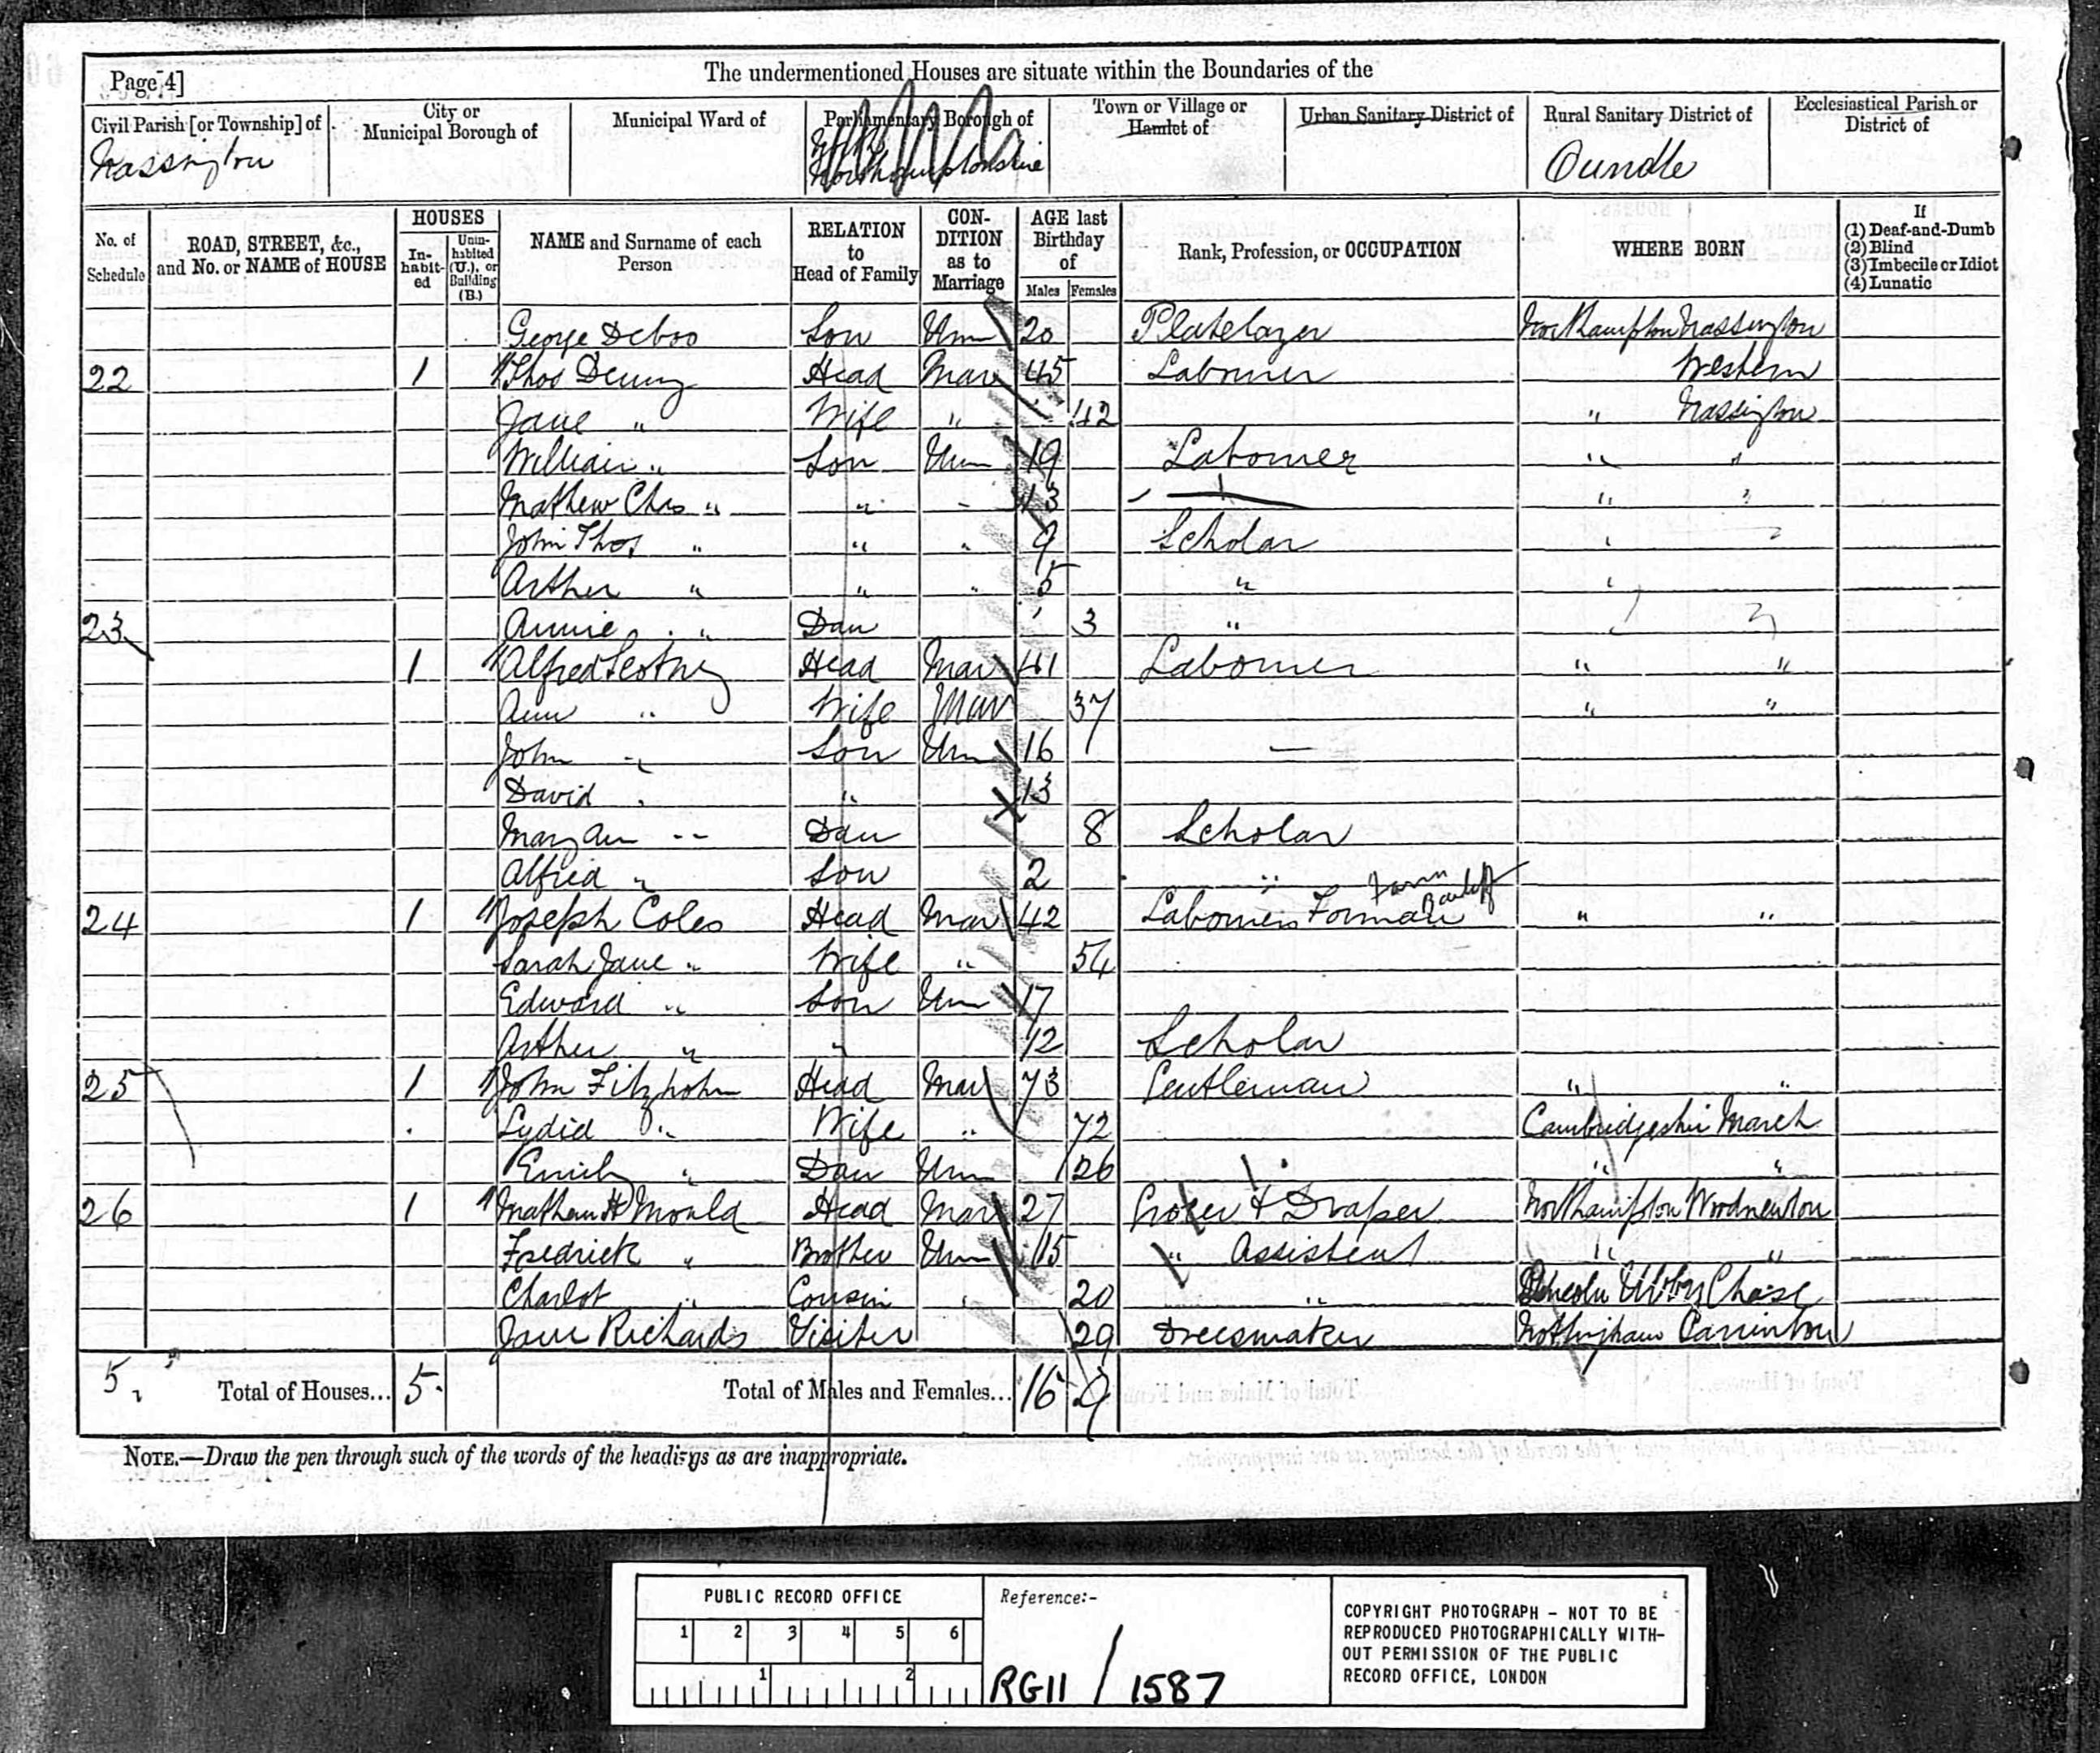 Page 4]
The undermentioned Houses are situate within the Boundaries of the
Civil Parish [or Township] of
City or Municipal Borough of
Municipal Ward of
Parliamentary Borough of
Town or Village or Hamlet of
Urban Sanitary District of
Rural Sanitary District of
Ecclesiastical Parish or District of
Nassington
Northamptonshire
Oundle
No. of Schedule
ROAD, STREET, &c., and No. or NAME of HOUSE
HOUSES
In-habit-ed
Unin-habited (U.), or Building (B.)
NAME and Surname of each Person
RELATION to Head of Family
CON-DITION as to Marriage
AGE last Birthday of
Males Females
Rank, Profession, or OCCUPATION
WHERE BORN
If
(1) Deaf-and-Dumb
(2) Blind
(3) Imbecile or Idiot
(4) Lunatic
George Deboo Son Unm 20 Platelayer Northampton Nassington
22 1 Thos Denny Head Mar 45 Labourer Western
Jane " Wife " 42 " Nassington
William " Son Unm 19 Labourer " "
Mathew Chas " " - 13 — " "
John Thos " " " 9 Scholar " "
Arther " " " 5 " "
23 Annie " Dau 3 "
1 Alfred Scotney Head Mar 41 Labourer " "
Ann " Wife Mar 37 " "
John " Son Unm 16 —
David " " 13
Mary Ann " Dau 8 Scholar
Alfred " Son 2 "
Farm Bailiff
24 1 Joseph Coles Head Mar 42 Labourers Forman " "
Sarah Jane " Wife " 54
Edward " Son Unm 17
Arther " " 12 Scholar
25 1 John Fitzjohn Head Mar 73 Gentleman " "
Lydia " Wife " 72 Cambridgeshir March
Emily " Dau Unm 26 " "
26 1 Mathew H Mould Head Mar 27 Grocer & Draper Northampton Woodnewton
Fredrick " Brother Unm 15 " Assistent " "
Charlot " Cousin " 20 " Lincoln Chase
Jane Richards Visiter 29 Dressmaker Nottingham Carrinton
5 Total of Houses... 5 Total of Males and Females... 16 9
NOTE.—Draw the pen through such of the words of the headings as are inappropriate.
PUBLIC RECORD OFFICE
1 2 3 4 5 6
1 2
Reference:-
RG11 / 1587
COPYRIGHT PHOTOGRAPH - NOT TO BE
REPRODUCED PHOTOGRAPHICALLY WITH-
OUT PERMISSION OF THE PUBLIC
RECORD OFFICE, LONDON